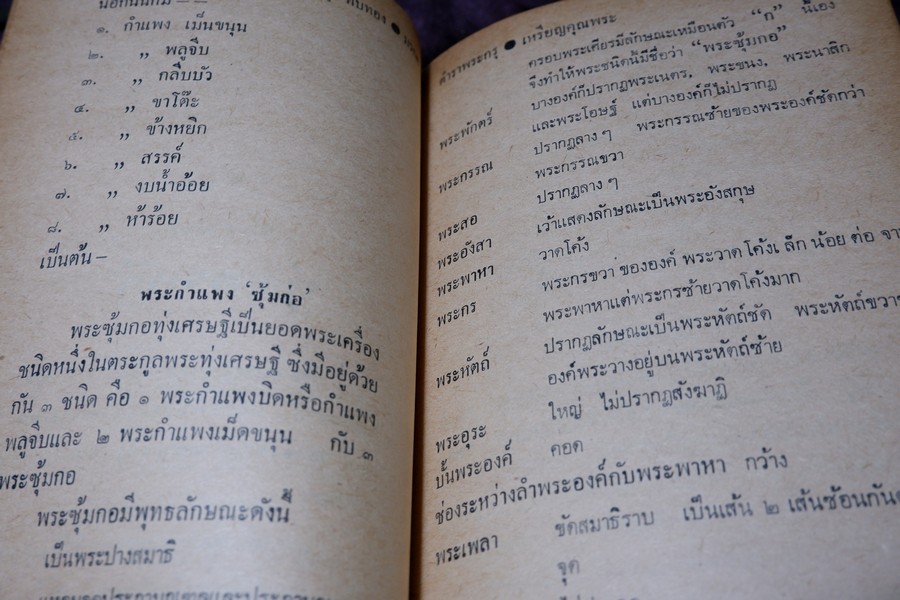 ๑. กำแพง เม็ดขนุน
๒. ,, พลูจีบ
๓. ,, กลีบบัว
๔. ,, ขาโต๊ะ
๕. ,, ข้างหยิก
๖. ,, สรรค์
๗. ,, งบน้ำอ้อย
๘. ,, ห้าร้อย
เป็นต้น –
พระกำแพง 'ซุ้มก่อ'
พระซุ้มกอทุ่งเศรษฐีเป็นยอดพระเครื่อง
ชนิดหนึ่งในตระกูลพระทุ่งเศรษฐี ซึ่งมีอยู่ด้วย
กัน ๓ ชนิด คือ ๑ พระกำแพงบิดหรือกำแพง
พลูจีบและ ๒ พระกำแพงเม็ดขนุน กับ ๓
พระซุ้มกอ
พระซุ้มกอมีพุทธลักษณะดังนี้
เป็นพระปางสมาธิ
ตำราพระกรุ ● เหรียญคุณพระ
ครอบพระเศียรมีลักษณะเหมือนตัว “ก” นี้เอง
จึงทำให้พระชนิดนี้มีชื่อว่า “พระซุ้มกอ”
พระพักตร์ บางองค์ก็ปรากฏพระเนตร, พระขนง, พระนาสิก
และพระโอษฐ์ แต่บางองค์ก็ไม่ปรากฏ
พระกรรณ ปรากฏลาง ๆ พระกรรณซ้ายของพระองค์ชัดกว่า
พระกรรณขวา
พระสอ ปรากฏลาง ๆ
พระอังสา เว้าแสดงลักษณะเป็นพระอังสกุษ
พระพาหา วาดโค้ง
พระกร พระกรขวา ขององค์ พระวาดโค้งเล็กน้อย ต่อ จาก
พระพาหาแต่พระกรซ้ายวาดโค้งมาก
พระหัตถ์ ปรากฏลักษณะเป็นพระหัตถ์ชัด พระหัตถ์ขวา
องค์พระวางอยู่บนพระหัตถ์ซ้าย
พระอุระ ใหญ่ ไม่ปรากฏสังฆาฏิ
บั้นพระองค์ คอด
ช่องระหว่างลำพระองค์กับพระพาหา กว้าง
พระเพลา ขัดสมาธิราบ เป็นเส้น ๒ เส้นซ้อนกัน
จุด